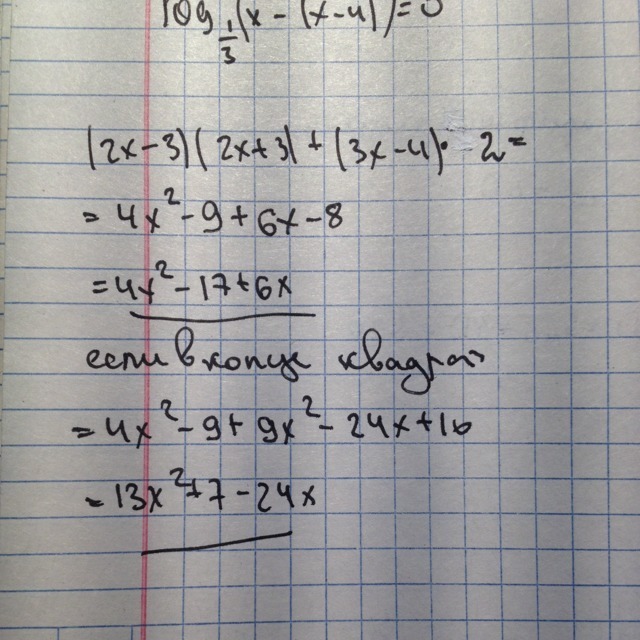 log 1/3 (x - (x-4) = 0
(2x-3)(2x+3)+(3x-4)· 2=
= 4x²-9+6x-8
= 4x²-17+6x
если в конце квадрат
= 4x²-9+9x²-24x+16
= 13x²+7-24x